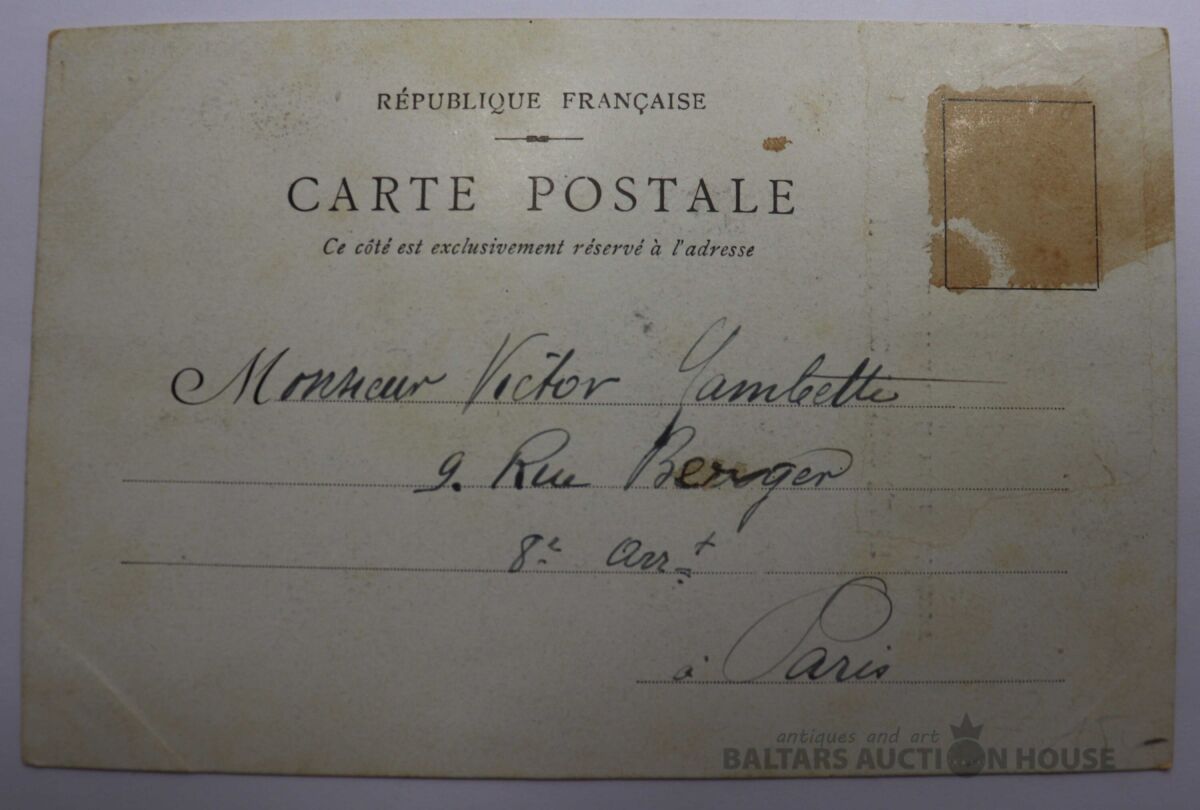 RÉPUBLIQUE FRANÇAISE
CARTE POSTALE
Ce côté est exclusivement réservé à l'adresse
Monsieur Victor Gambette
9. Rue Berryer
8e Arrt
à Paris
antiques and art
BALTARS AUCTION HOUSE